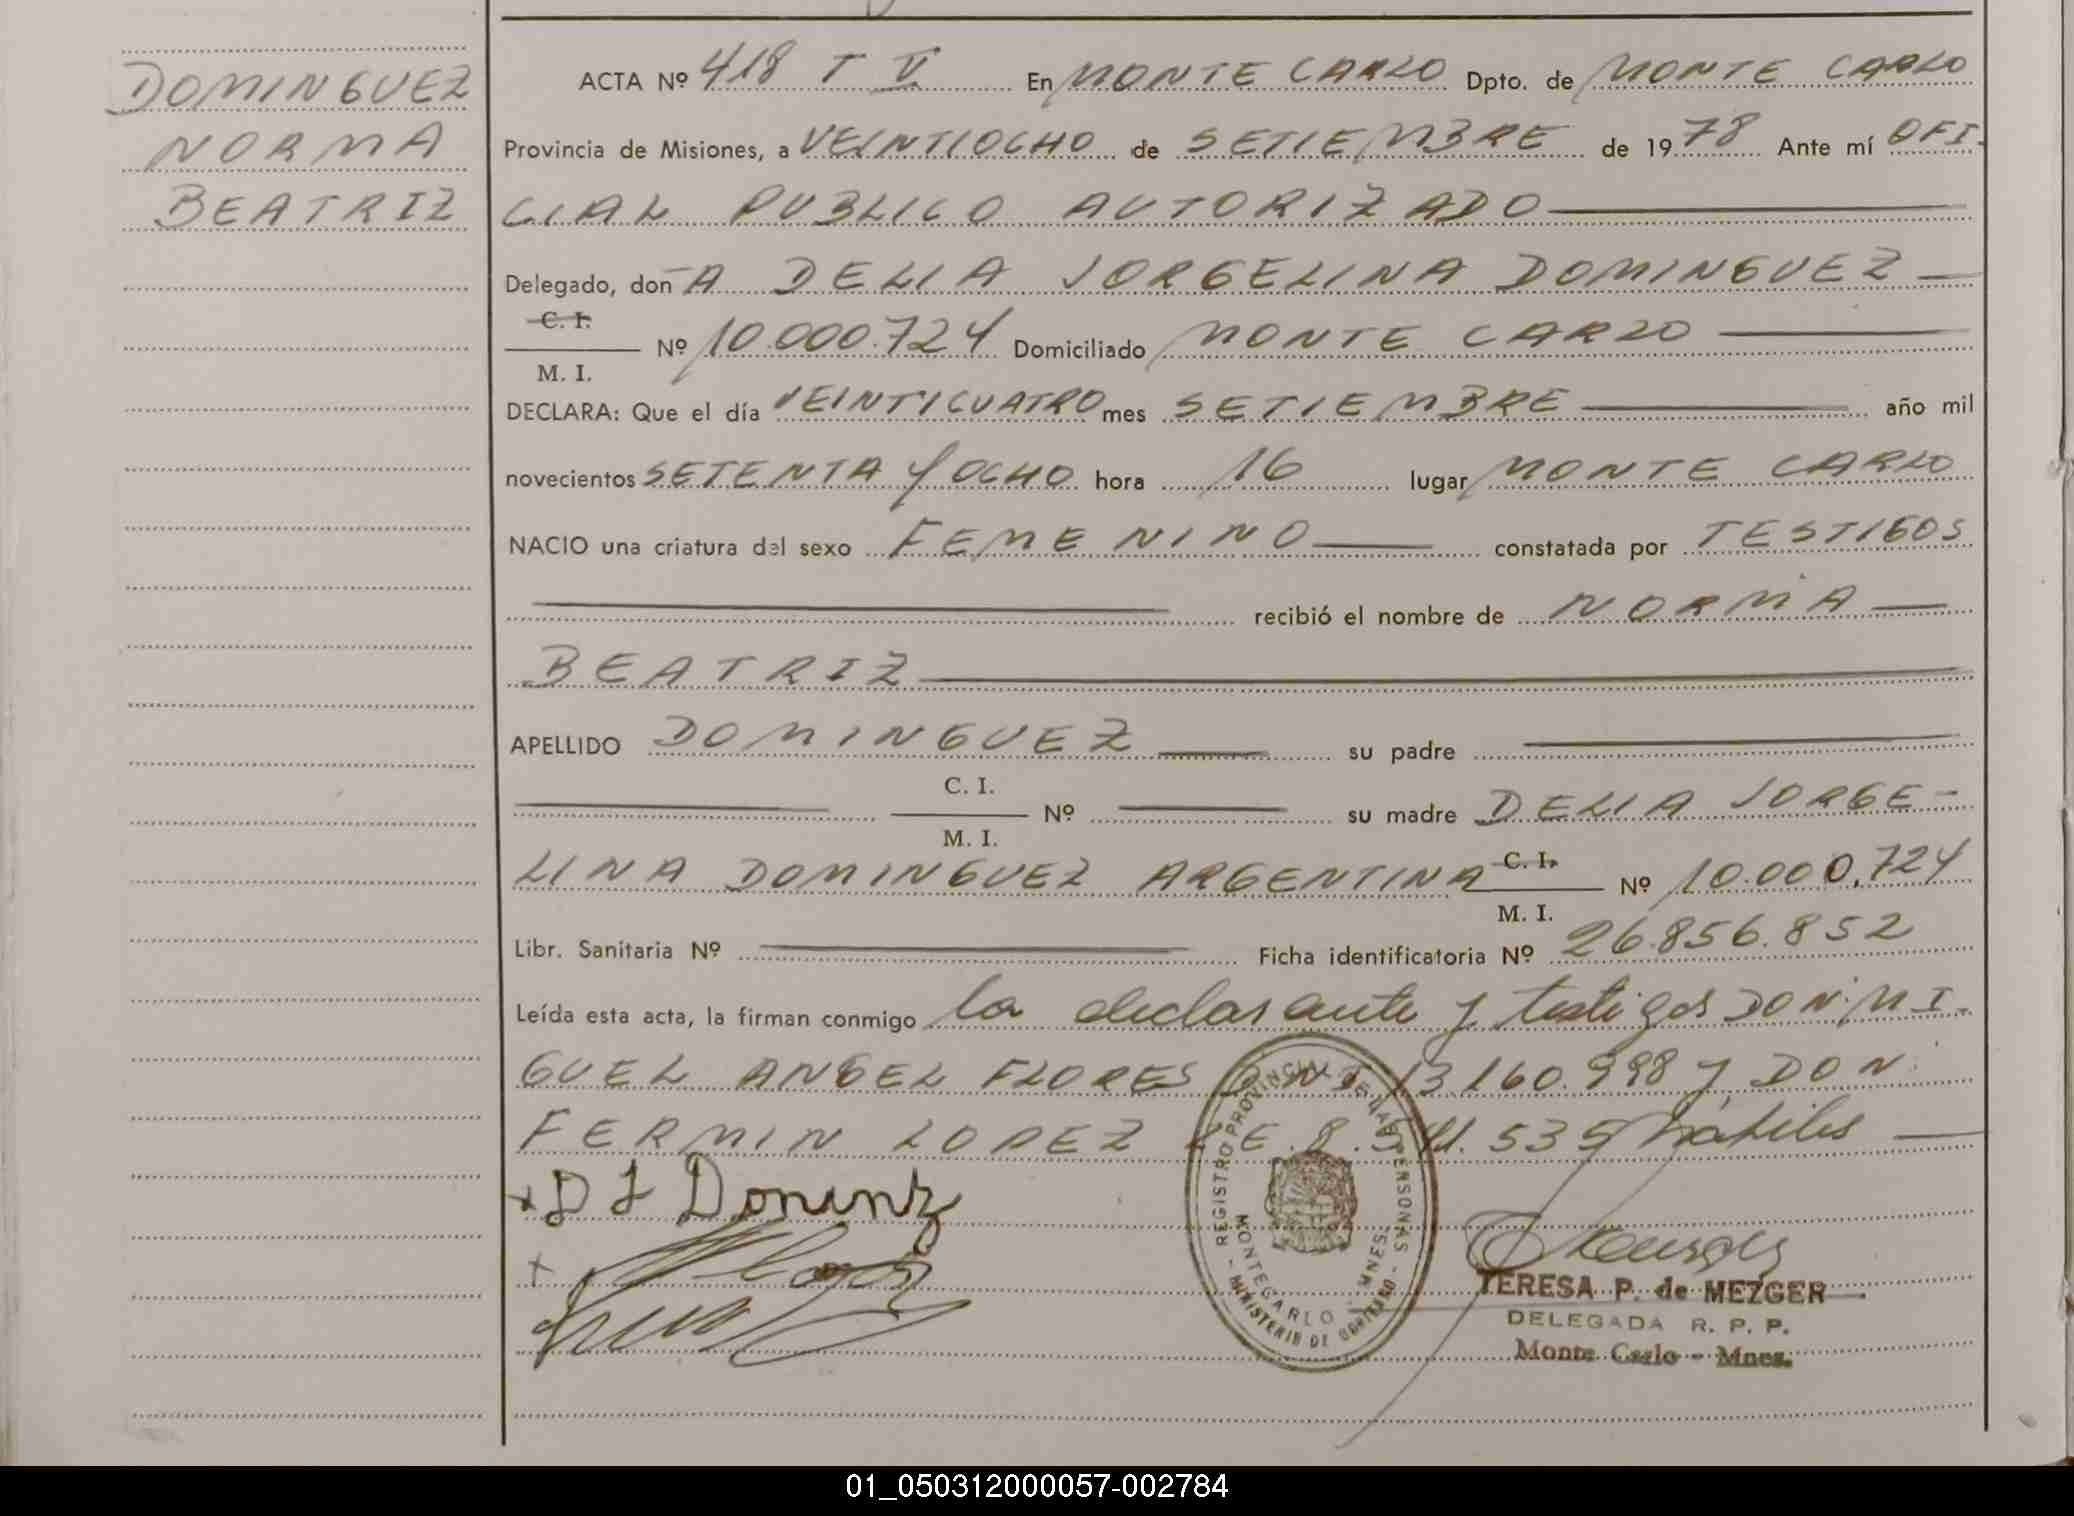 DOMINGUEZ
NORMA
BEATRIZ
ACTA Nº 418 T V En MONTE CARLO Dpto. de MONTE CARLO
Provincia de Misiones, a VEINTIOCHO de SETIEMBRE de 1978 Ante mí OFI-
CIAL PUBLICO AUTORIZADO
Delegado, doñA DELIA JORGELINA DOMINGUEZ
C. I.
Nº 10.000.724 Domiciliado MONTE CARLO
M. I.
DECLARA: Que el día VEINTICUATRO mes SETIEMBRE año mil
novecientos SETENTA y OCHO hora 16 lugar MONTE CARLO
NACIO una criatura del sexo FEMENINO constatada por TESTIGOS
recibió el nombre de NORMA
BEATRIZ
APELLIDO DOMINGUEZ su padre
C. I.
Nº su madre DELIA JORGE-
M. I.
LINA DOMINGUEZ ARGENTINA C. I. Nº 10.000.724
M. I.
Libr. Sanitaria Nº Ficha identificatoria Nº 26.856.852
Leída esta acta, la firman conmigo la declarante y testigos DON: MI-
GUEL ANGEL FLORES D.N.I. 13.160.998 y DON:
FERMIN LOPEZ L.E. 8. 535 hábiles
x D J
REGISTRO PROVINCIAL DE LAS PERSONAS
MONTECARLO MNES.
- MINISTERIO DE GOBIERNO -
TERESA P. de MEZGER
DELEGADA R. P. P.
Monte Carlo - Mnes.
01_050312000057-002784